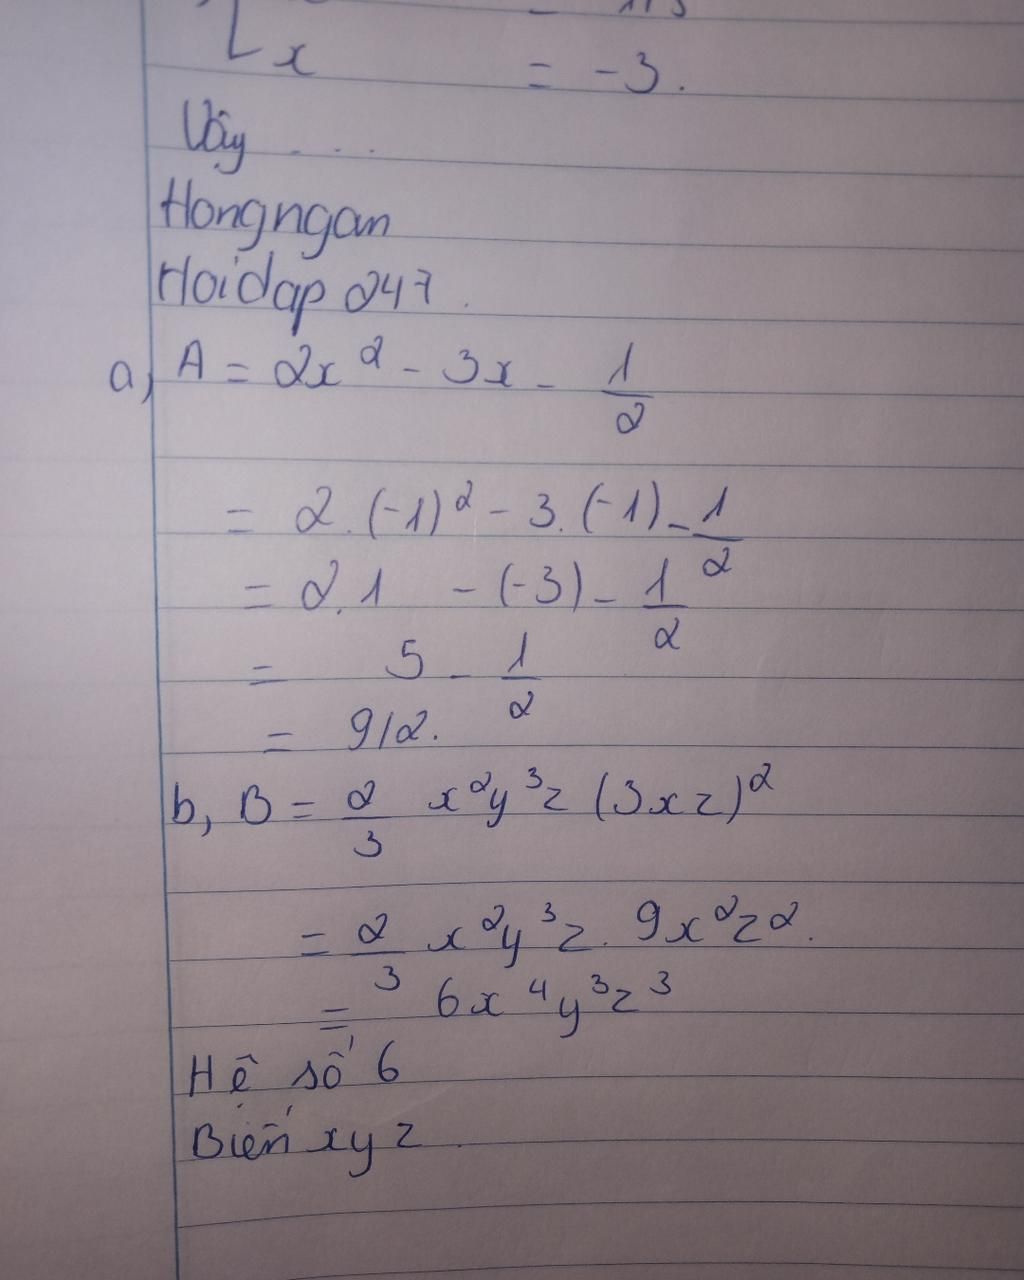 x = -3.
Vậy ...
Hongngan
Hoidap 247.
a, A = 2x² - 3x - 1/2
= 2.(-1)² - 3.(-1) - 1/2
= 2.1 - (-3) - 1/2
= 5 - 1/2
= 9/2.
b, B = 2/3 x²y³z (3xz)²
= 2/3 x²y³z. 9x²z².
= 6x⁴y³z³
Hệ số 6
Biến xyz.